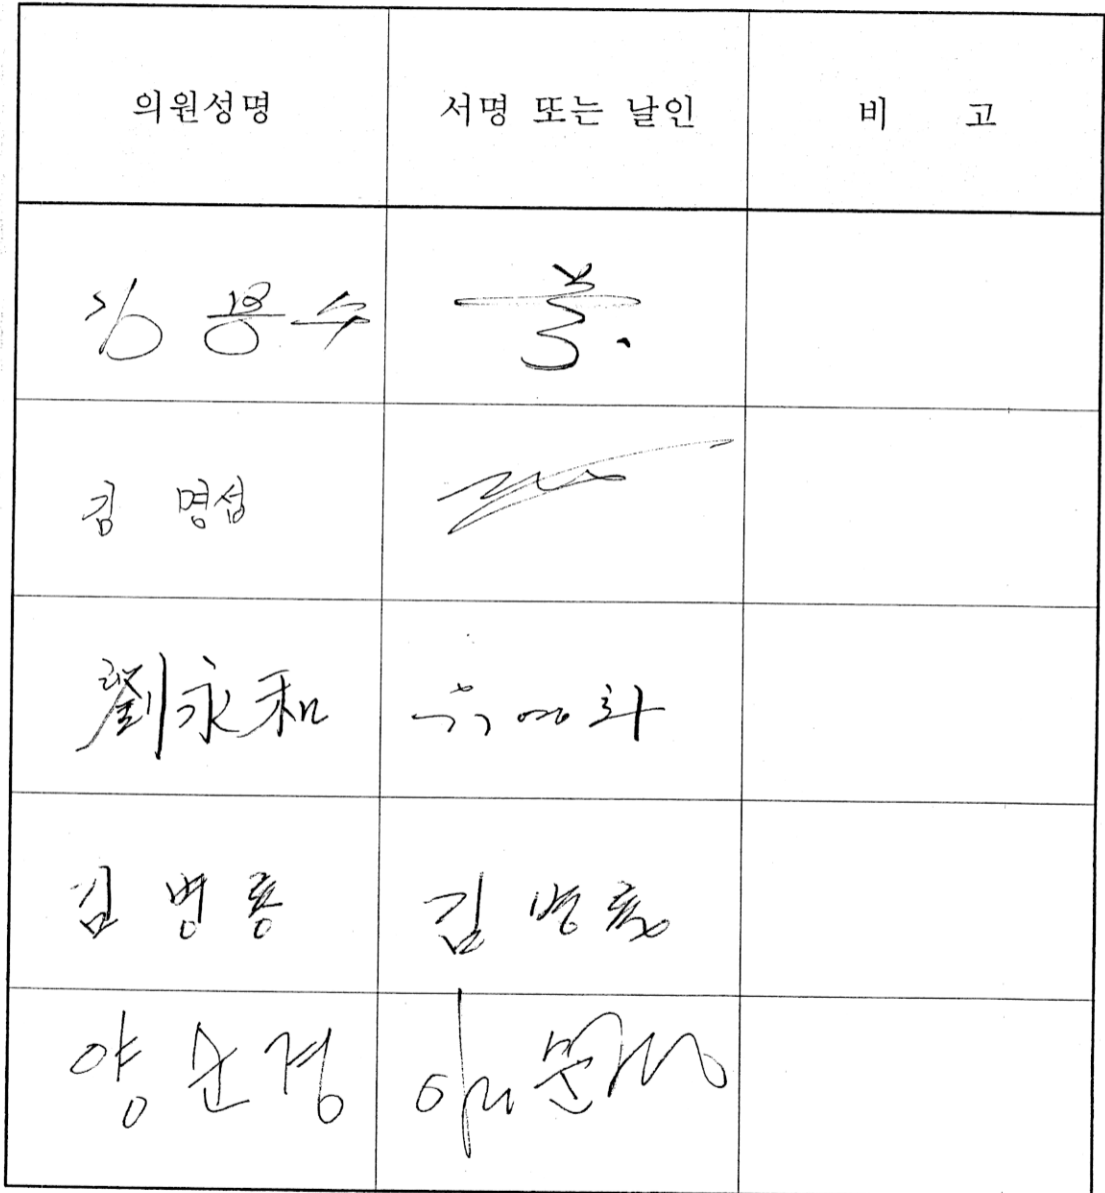 의원성명 서명 또는 날인 비 고
용수
김 명섭
劉永和 유영화
김 병룡 김 병룡
양순경